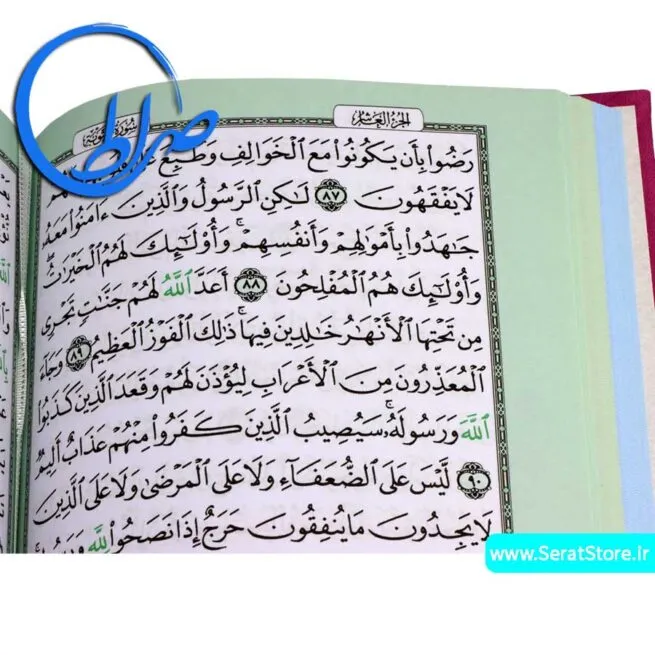 صراط
الجزء العشر
سورة التوبة
رَضُوا۟ بِأَن يَكُونُوا۟ مَعَ ٱلْخَوَالِفِ وَطُبِعَ
لَا يَفْقَهُونَ ٨٧ لَٰكِنِ ٱلرَّسُولُ وَٱلَّذِينَ ءَامَنُوا۟ مَعَهُ
جَٰهَدُوا۟ بِأَمْوَٰلِهِمْ وَأَنفُسِهِمْ ۚ وَأُو۟لَٰٓئِكَ لَهُمُ ٱلْخَيْرَٰتُ ۖ
وَأُو۟لَٰٓئِكَ هُمُ ٱلْمُفْلِحُونَ ٨٨ أَعَدَّ ٱللَّهُ لَهُمْ جَنَّٰتٍ تَجْرِى
مِن تَحْتِهَا ٱلْأَنْهَٰرُ خَٰلِدِينَ فِيهَا ۚ ذَٰلِكَ ٱلْفَوْزُ ٱلْعَظِيمُ ٨٩ وَجَآءَ
ٱلْمُعَذِّرُونَ مِنَ ٱلْأَعْرَابِ لِيُؤْذَنَ لَهُمْ وَقَعَدَ ٱلَّذِينَ كَذَبُوا۟
ٱللَّهَ وَرَسُولَهُۥ ۚ سَيُصِيبُ ٱلَّذِينَ كَفَرُوا۟ مِنْهُمْ عَذَابٌ أَلِيمٌ
٩٠ لَّيْسَ عَلَى ٱلضُّعَفَآءِ وَلَا عَلَى ٱلْمَرْضَىٰ وَلَا عَلَى ٱلَّذِينَ
لَا يَجِدُونَ مَا يُنفِقُونَ حَرَجٌ إِذَا نَصَحُوا۟ لِلَّهِ
www.SeratStore.ir